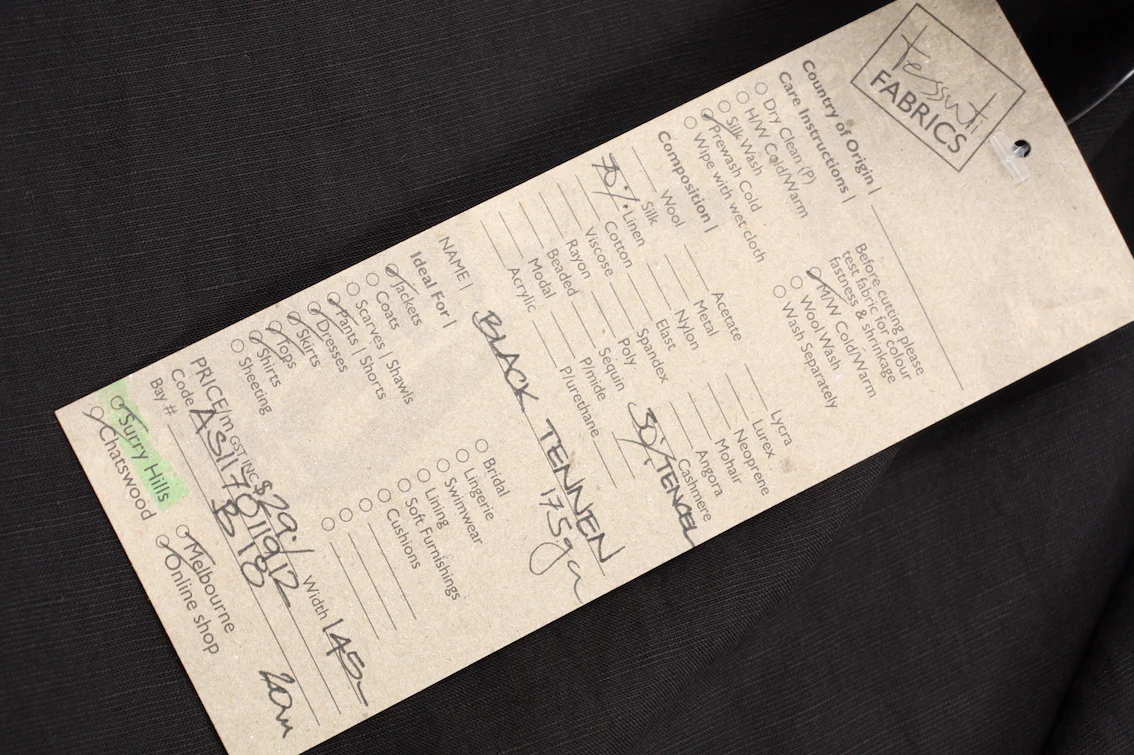 tessuti
FABRICS
Country of Origin |
Care Instructions |
Dry Clean (P)
H/W Cold/Warm
Silk Wash
Prewash Cold
Wipe with wet cloth
Before cutting please
test fabric for colour
fastness & shrinkage
M/W Cold/Warm
Wool Wash
Wash Separately
Composition |
Wool
Silk
70% Linen
Cotton
Viscose
Rayon
Beaded
Modal
Acrylic
Acetate
Metal
Nylon
Elast
Spandex
Poly
Sequin
P/mide
P/urethane
Lycra
Lurex
Neoprene
Mohair
Angora
Cashmere
30% TENCEL
NAME | BLACK TENNEN
175g
Ideal For |
Jackets
Coats
Scarves | Shawls
Pants | Shorts
Dresses
Skirts
Tops
Shirts
Sheeting
Bridal
Lingerie
Swimwear
Lining
Soft Furnishings
Cushions
PRICE/m GST INC $29./ Width 145
Code
Bay # B10
Surry Hills
Chatswood
Melbourne
Online shop
20m